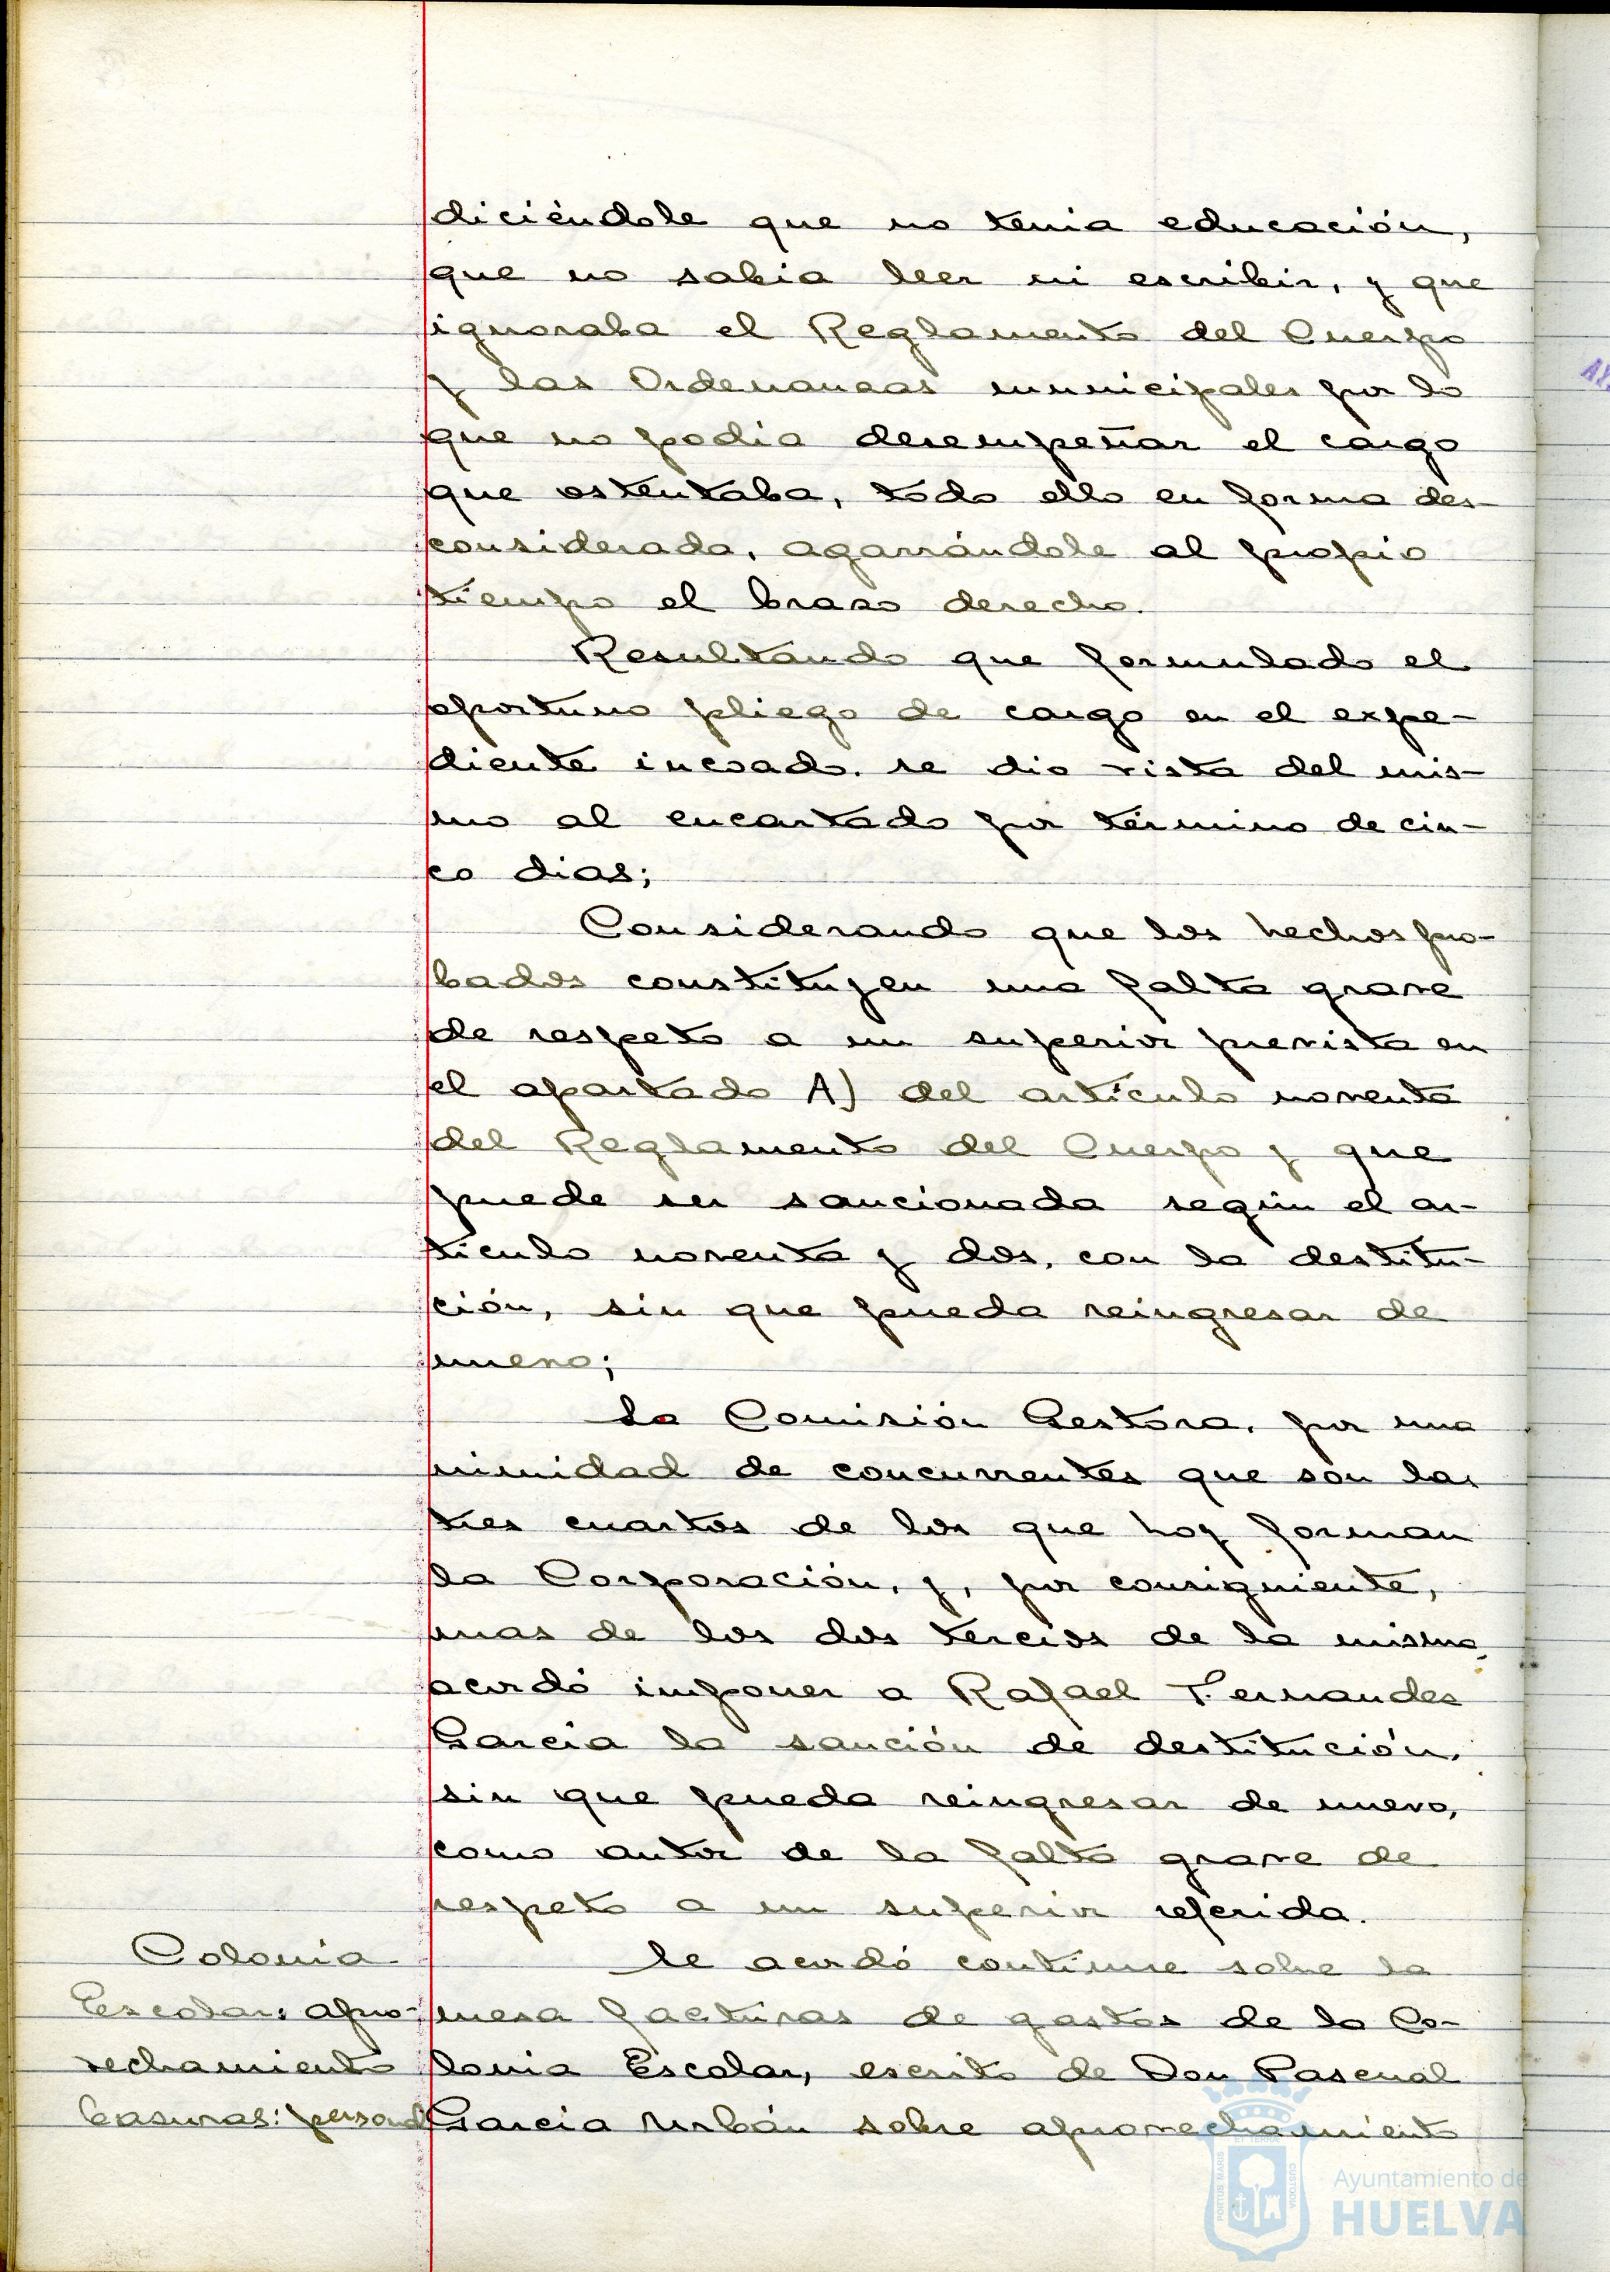 diciéndole que no tenia educación,
que no sabia leer ni escribir, y que
ignoraba el Reglamento del Cuerpo
y las Ordenanzas municipales por lo
que no podia desempeñar el cargo
que ostentaba, todo ello en forma des-
considerada, agarrándole al propio
tiempo el brazo derecho.
Resultando que formulado el
oportuno pliego de cargo en el expe-
diente incoado. se dio vista del mis-
mo al encartado por término de cin-
co dias;
Considerando que los hechos pro-
bados constituyen una falta grave
de respeto a un superior prevista en
el apartado A) del artículo noventa
del Reglamento del Cuerpo y que
puede ser sancionada según el ar-
ticulo noventa y dos, con la destitu-
ción, sin que pueda reingresar de
nuevo;
La Comisión Gestora, por una
nimidad de concurrentes que son las
tres cuartos de los que hoy forman
la Corporación, y, por consiguiente,
mas de los dos tercios de la misma,
acordó imponer a Rafael T. Fernandez
Garcia la sanción de destitución,
sin que pueda reingresar de nuevo,
como autor de la falta grave de
respeto a un superior referida.
Colonia
Escolar: apro-
vechamiento
basuras: personal
Se acordó continue sobre la
mesa facturas de gastos de la Co-
lonia Escolar, escrito de Don Pascual
Garcia Urbán sobre aprovechamiento
Ayuntamiento de
HUELVA
PORTUS MARIS
ET TERRÆ
CUSTODIA